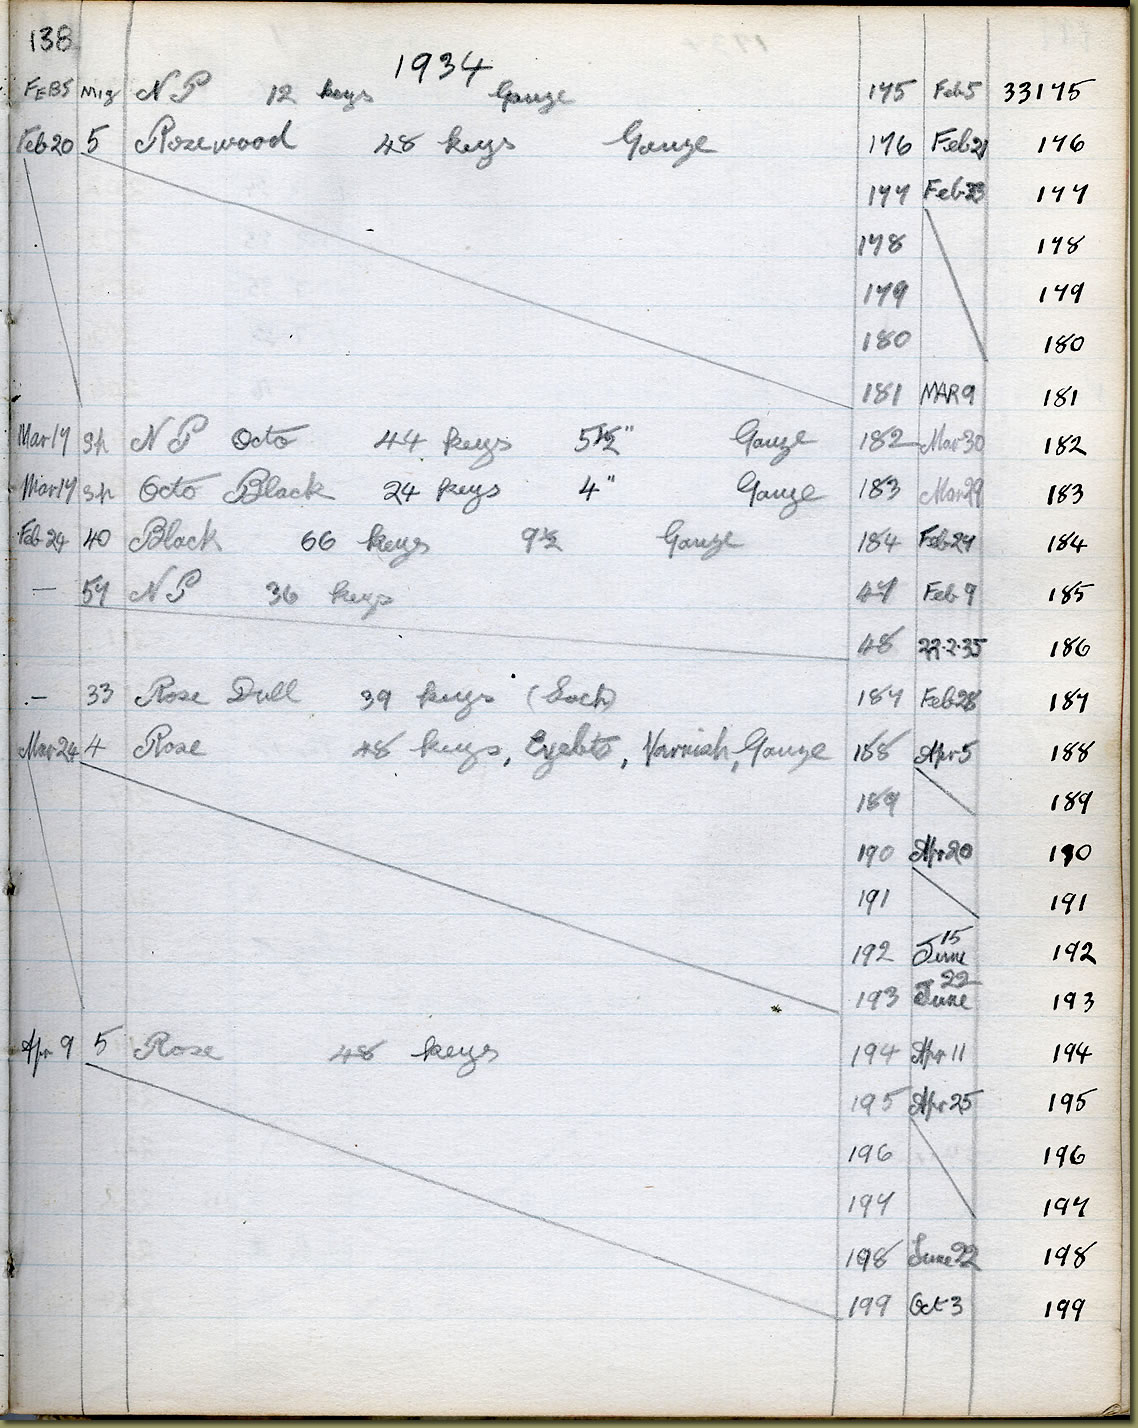 138
1934
FEB5 Mig NP 12 keys Gauze 175 Feb 5 33175
Feb 20 5 Rosewood 48 keys Gauze 176 Feb 21 176
177 Feb 23 177
178 178
179 179
180 180
181 MAR 9 181
Mar 17 Sp NP Octo 44 keys 5½" Gauze 182 Mar 30 182
Mar 17 Sp Octo Black 24 keys 4" Gauze 183 Mar 29 183
Feb 24 40 Black 66 keys 9½ Gauze 184 Feb 27 184
— 57 NP 36 keys 47 Feb 9 185
48 22.2.35 186
— 33 Rose Dull 39 keys (Each) 187 Feb 28 187
Mar 24 4 Rose 48 keys, Eyebts, Varnish, Gauze 188 Apr 5 188
189 189
190 Apr 20 190
191 191
192 June 15 192
193 June 22 193
Apr 9 5 Rose 48 keys 194 Apr 11 194
195 Apr 25 195
196 196
197 197
198 June 22 198
199 Oct 3 199